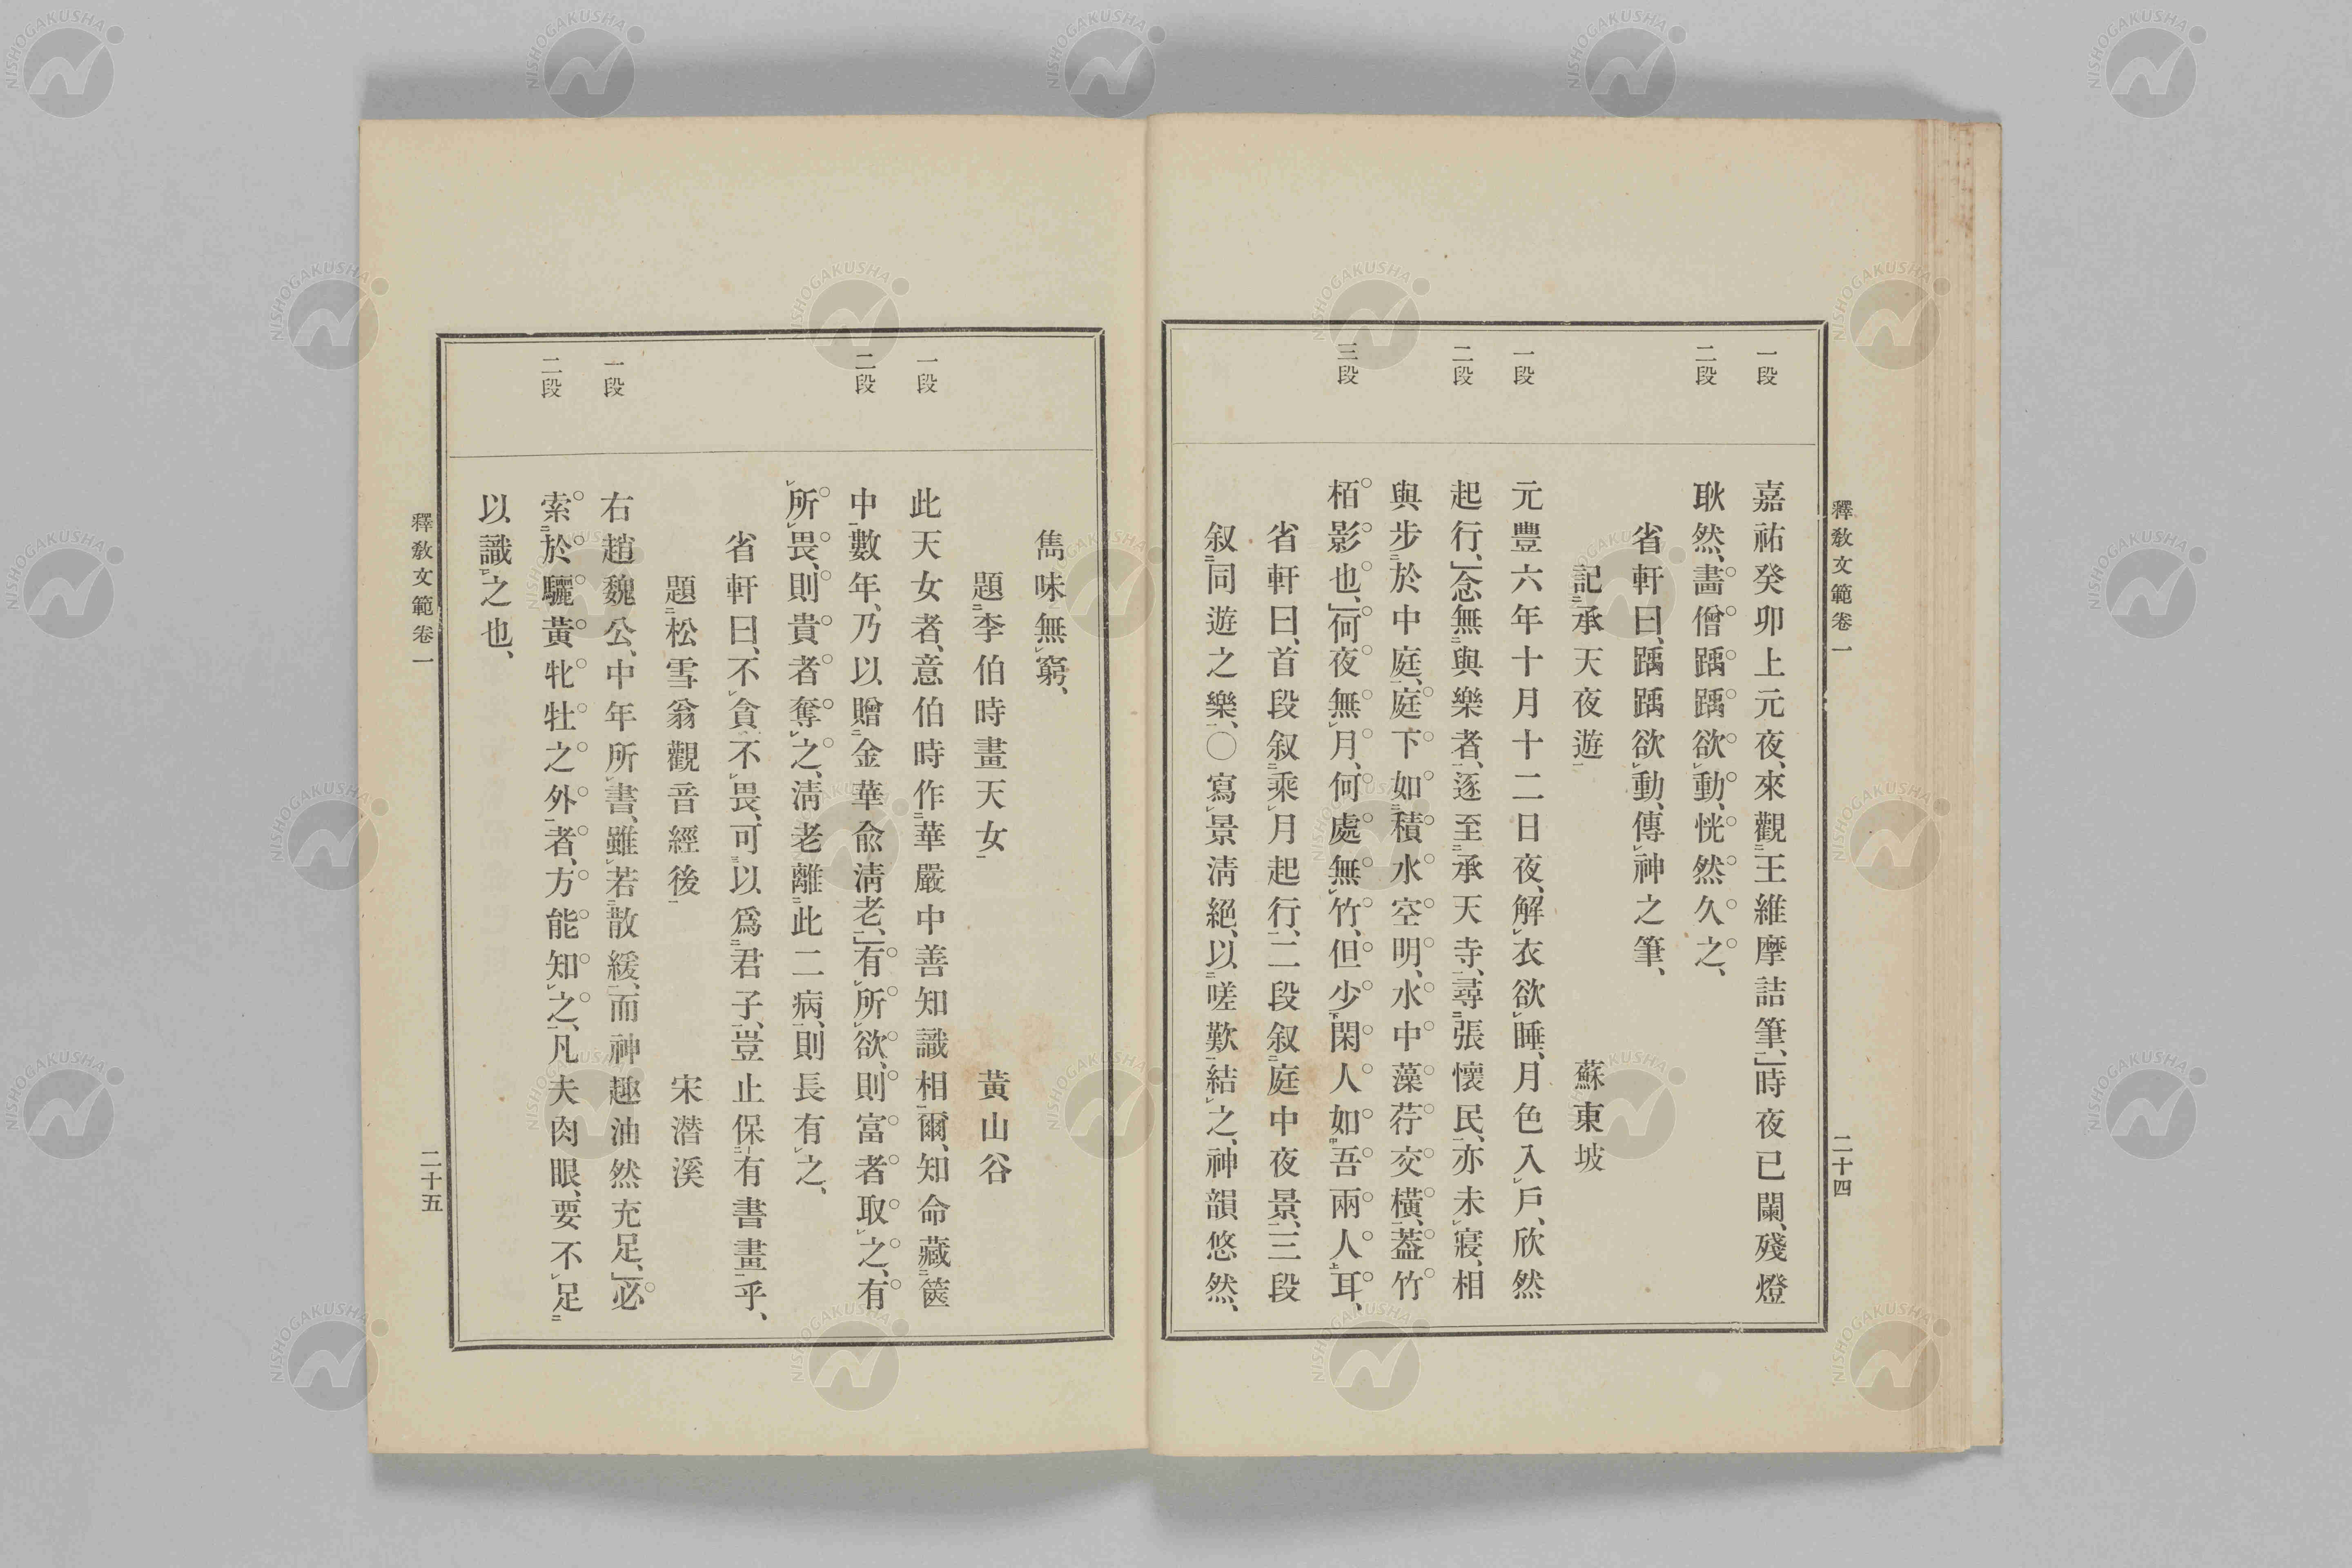 釋敎文範卷一
二十四
一段
嘉祐癸卯上元夜、來觀王維摩詰筆、時夜已闌、殘燈
二段
耿然、畵僧踽踽欲動、恍然久之、
省軒曰、踽踽欲動、傳神之筆、
記承天夜遊 蘇東坡
一段
元豐六年十月十二日夜、解衣欲睡、月色入戶、欣然
二段
起行、念無與樂者、逐至承天寺、尋張懷民、亦未寢、相
與步於中庭、庭下如積水空明、水中藻荇交橫、葢竹
三段
栢影也、何夜無月、何處無竹、但少閑人如吾兩人耳、
省軒曰、首段叙乘月起行、二段叙庭中夜景、三段
叙同遊之樂、〇寫景淸絕、以嗟歎結之、神韻悠然、
雋味無窮、
題李伯時畫天女 黃山谷
一段
此天女者、意伯時作華嚴中善知識相爾、知命藏篋
二段
中數年、乃以贈金華兪淸老、有所欲、則富者取之、有
所畏、則貴者奪之、淸老離此二病、則長有之、
省軒曰、不貪不畏、可以爲君子、豈止保有書畫乎、
題松雪翁觀音經後 宋潛溪
一段
右趙魏公、中年所書、雖若散緩、而神趣油然充足、必
二段
索於驪黃牝牡之外者、方能知之、凡夫肉眼、要不足
以識之也、
釋敎文範卷一
二十五
NISHOGAKUSHA